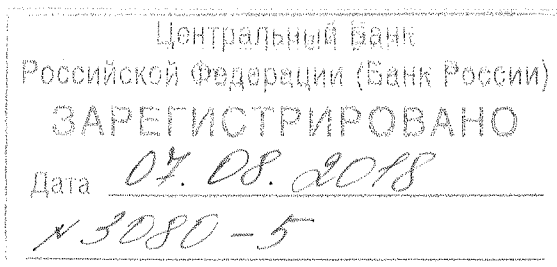 Центральный Банк
Российской Федерации (Банк России)
ЗАРЕГИСТРИРОВАНО
Дата 07.08.2018
№ 3080-5